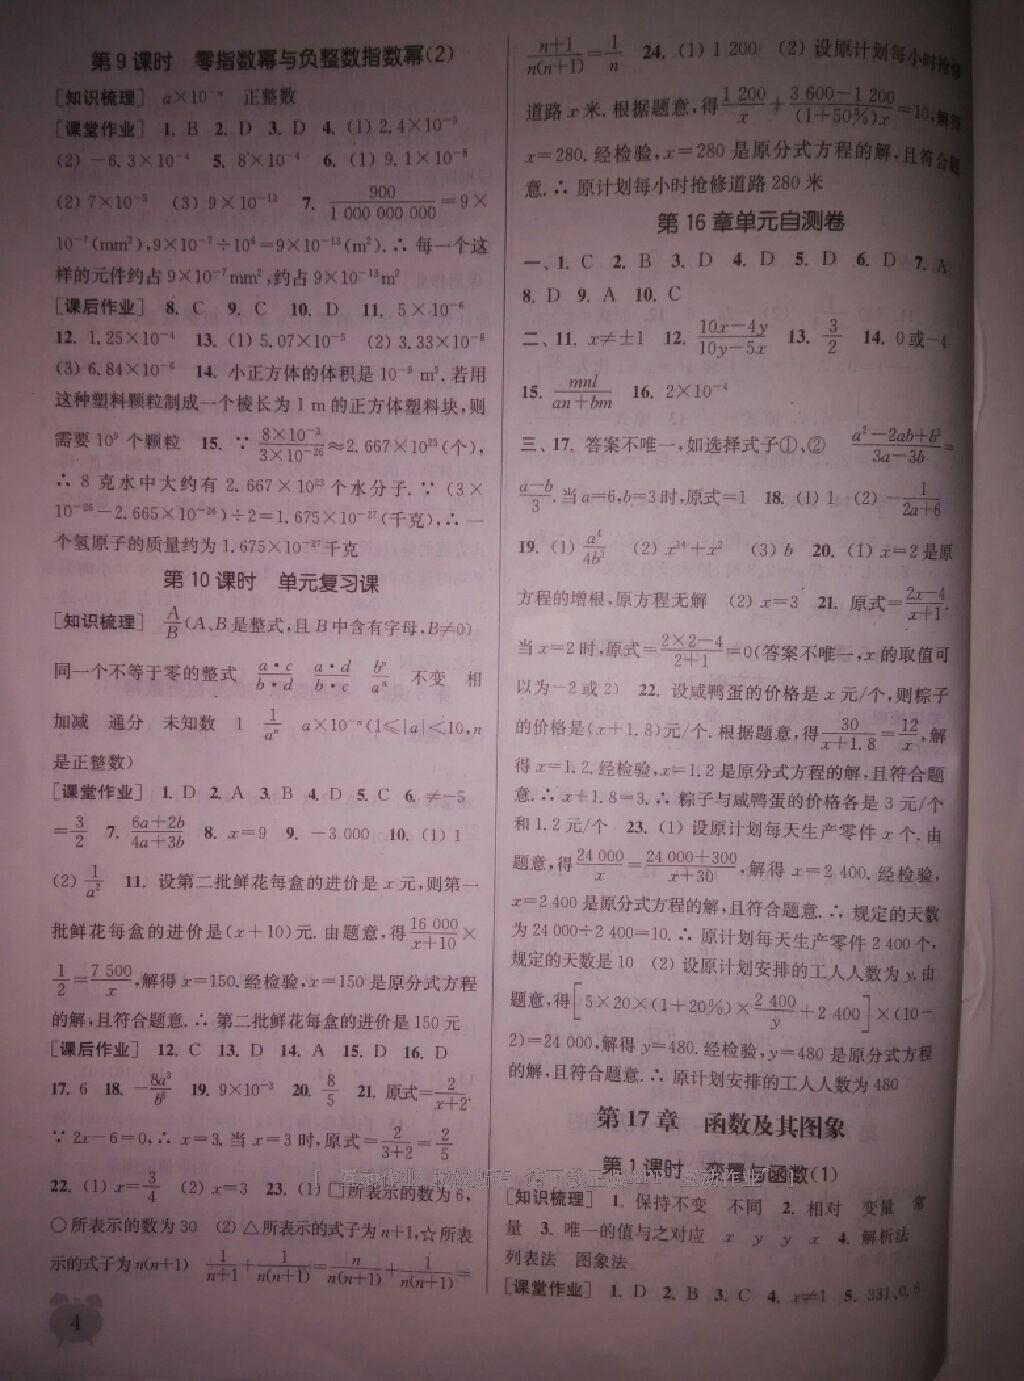 第9课时 零指数幂与负整数指数幂(2)
[知识梳理] a×10⁻ⁿ 正整数
[课堂作业] 1. B 2. D 3. D 4. (1) 2.4×10⁻⁵
(2) -6.3×10⁻⁴ 5. 8×10⁻⁴ 6. (1) 9.1×10⁻⁸
(2) 7×10⁻⁵ (3) 9×10⁻¹³ 7. 900/1 000 000 000 = 9×
10⁻⁷(mm²), 9×10⁻⁷÷10⁶=9×10⁻¹³(m²). ∴ 每一个这
样的元件约占 9×10⁻⁷mm², 约占 9×10⁻¹³m²
[课后作业] 8. C 9. C 10. D 11. 5×10⁻⁶
12. 1.25×10⁻⁴ 13. (1) 5.07×10⁻⁵ (2) 3.33×10⁻⁸
(3) 6.84×10⁻⁶ 14. 小正方体的体积是 10⁻⁹ m³. 若用
这种塑料颗粒制成一个棱长为 1 m 的正方体塑料块, 则
需要 10⁹ 个颗粒 15. ∵ 8×10⁻³/3×10⁻²⁶≈2.667×10²³(个),
∴ 8 克水中大约有 2.667×10²³ 个水分子. ∵ (3×
10⁻²⁶-2.665×10⁻²⁶)÷2=1.675×10⁻²⁷(千克), ∴ 一
个氢原子的质量约为 1.675×10⁻²⁷千克
第10课时 单元复习课
[知识梳理] A/B(A、B是整式, 且 B 中含有字母, B≠0)
同一个不等于零的整式 a·c/b·d a·d/b·c bⁿ/aⁿ 不变 相
加减 通分 未知数 1 1/aⁿ a×10⁻ⁿ(1≤|a|<10, n
是正整数)
[课堂作业] 1. D 2. A 3. B 4. D 5. C 6. ≠-5
=3/2 7. 6a+2b/4a+3b 8. x=9 9. -3 000 10. (1) 1
(2) 1/a² 11. 设第二批鲜花每盒的进价是 x 元, 则第一
批鲜花每盒的进价是(x+10)元. 由题意, 得 16 000/x+10 ×
1/2=7 500/x, 解得 x=150. 经检验, x=150 是原分式方程
的解, 且符合题意. ∴ 第二批鲜花每盒的进价是 150 元
[课后作业] 12. C 13. D 14. A 15. D 16. D
17. 6 18. -8a³/b⁶ 19. 9×10⁻³ 20. 8/5 21. 原式=2/x+2.
∵ 2x-6=0, ∴ x=3. 当 x=3 时, 原式=2/3+2=2/5
22. (1) x=3/4 (2) x=3 23. (1) □所表示的数为 6,
○所表示的数为 30 (2) △所表示的式子为 n+1, ☆所表
示的式子为 n(n+1) 1/n+1+1/n(n+1)=n/n(n+1)+1/n(n+1)=
4
n+1/n(n+1)=1/n 24. (1) 1 200 (2) 设原计划每小时抢修
道路 x 米. 根据题意, 得 1 200/x+3 600-1 200/(1+50%)x=10, 解得
x=280. 经检验, x=280 是原分式方程的解, 且符合题
意. ∴ 原计划每小时抢修道路 280 米
第16章单元自测卷
一、1. C 2. B 3. D 4. D 5. D 6. D 7. A
8. D 9. A 10. C
二、11. x≠±1 12. 10x-4y/10y-5x 13. 3/2 14. 0或-4
15. mnl/an+bm 16. 2×10⁻⁴
三、17. 答案不唯一, 如选择式子①、② a²-2ab+b²/3a-3b=
a-b/3. 当 a=6, b=3 时, 原式=1 18. (1) 1 (2) -1/2a+6
19. (1) a⁴/4b³ (2) x¹⁴+x² (3) b 20. (1) x=2 是原
方程的增根, 原方程无解 (2) x=3 21. 原式=2x-4/x+1.
当 x=2 时, 原式=2×2-4/2+1=0(答案不唯一, x 的取值可
以为-2 或 2) 22. 设咸鸭蛋的价格是 x 元/个, 则粽子
的价格是(x+1.8)元/个. 根据题意, 得 30/x+1.8=12/x, 解
得 x=1.2. 经检验, x=1.2 是原分式方程的解, 且符合题
意. ∴ x+1.8=3. ∴ 粽子与咸鸭蛋的价格各是 3 元/个
和 1.2 元/个 23. (1) 设原计划每天生产零件 x 个. 由
题意, 得 24 000/x=24 000+300/x+30, 解得 x=2 400. 经检验,
x=2 400 是原分式方程的解, 且符合题意. ∴ 规定的天数
为 24 000÷2 400=10. ∴ 原计划每天生产零件 2 400 个,
规定的天数是 10 (2) 设原计划安排的工人人数为 y. 由
题意, 得[5×20×(1+20%)×2 400/y+2 400]×(10-
2)=24 000, 解得 y=480. 经检验, y=480 是原分式方程
的解, 且符合题意. ∴ 原计划安排的工人人数为 480
第17章 函数及其图象
第1课时 变量与函数(1)
[知识梳理] 1. 保持不变 不同 2. 相对 变量 常
量 3. 唯一的值与之对应 x y y x 4. 解析法
列表法 图象法
[课堂作业] 1. D 2. B 3. C 4. x≠1 5. 331、0.6